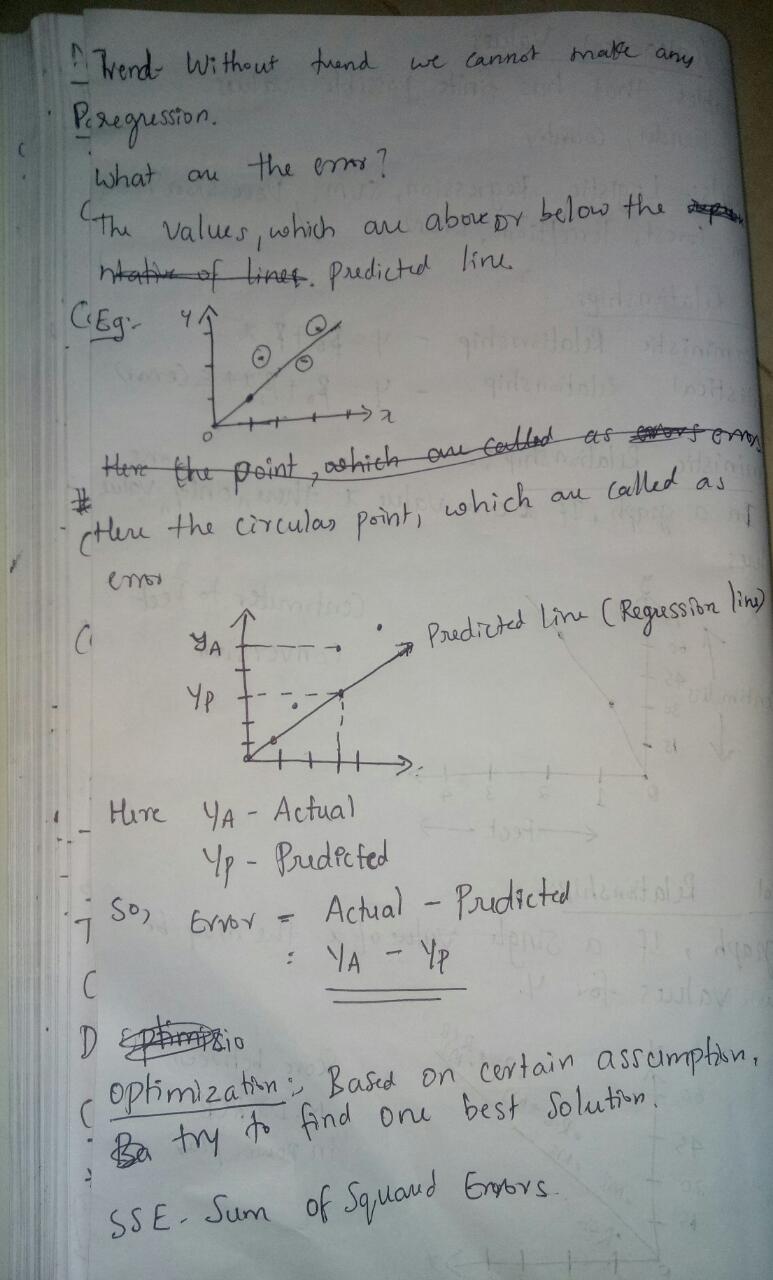 Trend- Without trend we cannot make any
regression.
What are the error?
The values, which are above or below the
ntative of lines. predicted line.
Eg:-
y
x
0
Here the point, which are called as errors error
#
Here the circular point, which are called as
error
Predicted Line (Regression line)
yA
yp
Here yA - Actual
yp - Predicted
So, Error = Actual - Predicted
= yA - yp
optimization:- Based on certain assumption,
Ba try to find one best solution.
SSE - Sum of Squared Errors.